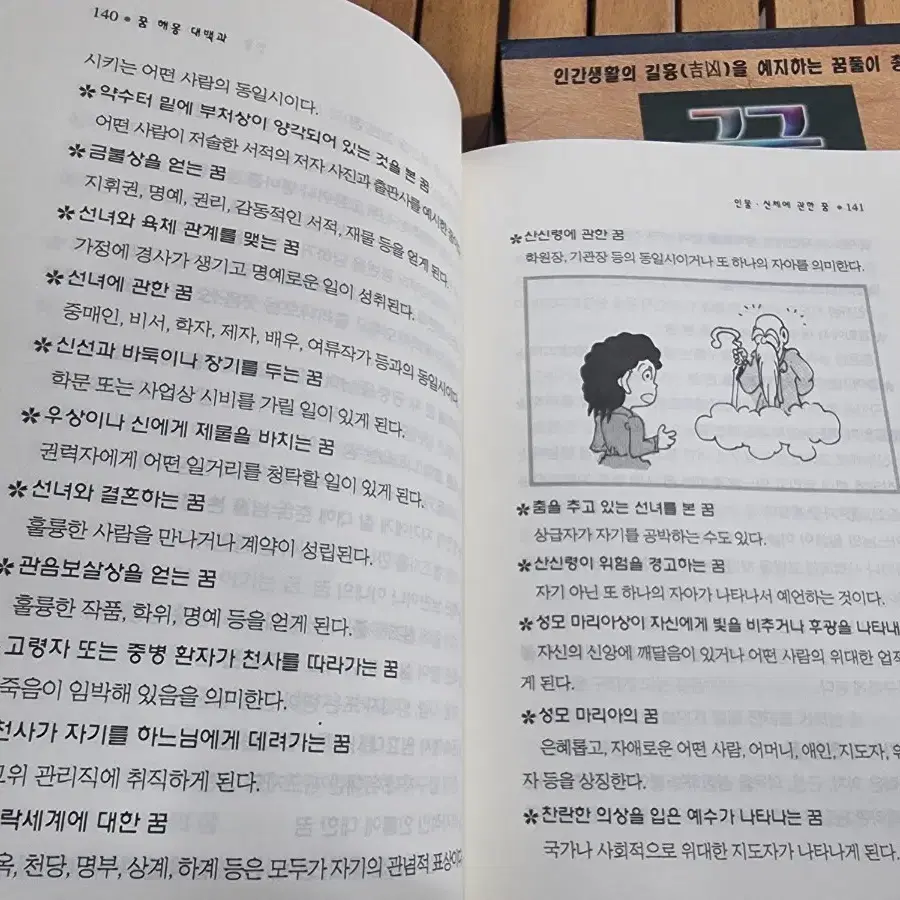 140 • 꿈 해몽 대백과
시키는 어떤 사람의 동일시이다.
✲약수터 밑에 부처상이 양각되어 있는 것을 본 꿈
어떤 사람이 저술한 서적의 저자 사진과 출판사를 예시한
✲금불상을 얻는 꿈
지휘권, 명예, 권리, 감동적인 서적, 재물 등을 얻게 된다.
✲선녀와 육체 관계를 맺는 꿈
가정에 경사가 생기고 명예로운 일이 성취된다.
✲선녀에 관한 꿈
중매인, 비서, 화자, 제자, 배우, 여류작가 등과의 동일시이다
✲신선과 바둑이나 장기를 두는 꿈
학문 또는 사업상 시비를 가릴 일이 있게 된다.
✲우상이나 신에게 제물을 바치는 꿈
권력자에게 어떤 일거리를 청탁할 일이 있게 된다.
✲선녀와 결혼하는 꿈
훌륭한 사람을 만나거나 계약이 성립된다.
✲관음보살상을 얻는 꿈
훌륭한 작품, 화위, 명예 등을 얻게 된다.
고령자 또는 중병 환자가 천사를 따라가는 꿈
죽음이 임박해 있음을 의미한다.
천사가 자기를 하느님에게 데려가는 꿈
고위 관리직에 취직하게 된다.
락세계에 대한 꿈
옥, 천당, 명부, 상계, 하계 등은 모두가 자기의 관념적 표상이
인간생활의 길흉(吉凶)을 예지하는 꿈풀이 총
꿈
인물·신체에 관한 꿈 • 141
✲산신령에 관한 꿈
학원장, 기관장 등의 동일시이거나 또 하나의 자아를 의미한다.
✲춤을 추고 있는 선녀를 본 꿈
상급자가 자기를 공박하는 수도 있다.
✲산신령이 위험을 경고하는 꿈
자기 아닌 또 하나의 자아가 나타나서 예언하는 것이다.
✲성모 마리아상이 자신에게 빛을 비추거나 후광을 나타내
자신의 신앙에 깨달음이 있거나 어떤 사람의 위대한 업적
게 된다.
✲성모 마리아의 꿈
은혜롭고, 자애로운 어떤 사람, 어머니, 애인, 지도자,
자 등을 상징한다.
✲찬란한 의상을 입은 예수가 나타나는 꿈
국가나 사회적으로 위대한 지도자가 나타나게 된다.